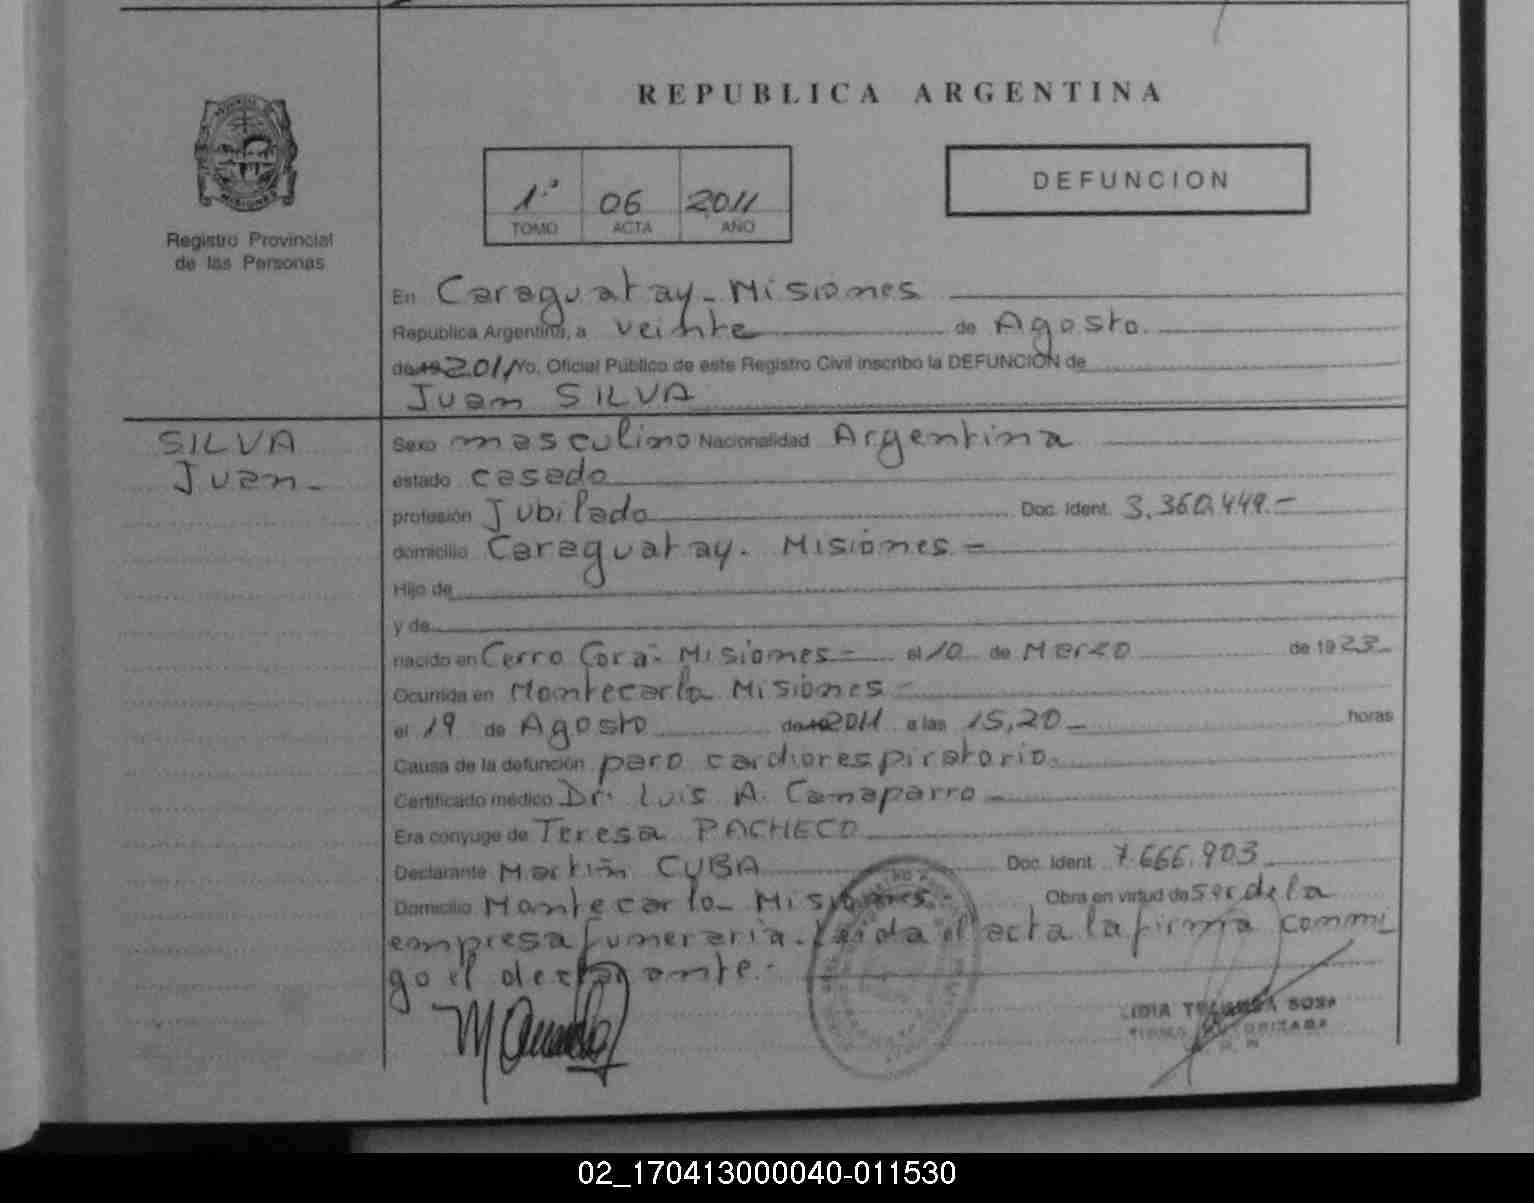 REPUBLICA ARGENTINA
MISIONES
Registro Provincial
de las Personas
1º 06 2011
TOMO ACTA AÑO
DEFUNCION
En Caraguatay - Misiones
Republica Argentina, a veinte de Agosto
de 19 2011 Yo, Oficial Público de este Registro Civil inscribo la DEFUNCION de
Juan SILVA
SILVA
Juan -
Sexo masculino Nacionalidad Argentina
estado casado
profesión Jubilado Doc. Ident. 3.360.449.-
domicilio Caraguatay. Misiones -
Hijo de
y de
nacido en Cerro Corá - Misiones - el 10 de Marzo de 1923-
Ocurrida en Montecarlo Misiones -
el 19 de Agosto de 19 2011 a las 15,20 - horas
Causa de la defunción paro cardiorespiratorio.
Certificado médico Dr. Luis A. Canaparro -
Era cónyuge de Teresa PACHECO
Declarante Martín CUBA Doc. Ident. 7.666.903
Domicilio Montecarlo - Misiones - Obra en virtud de ser de la
empresa funeraria. Leída el acta la firma conmi
go el declarante.-
LIDIA TERESA SOSA
FIRMA AUTORIZADA
02_170413000040-011530